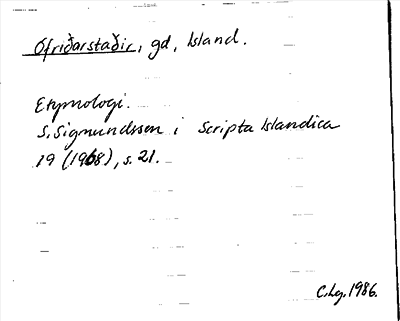 Ófriðarstaðir, gd, Island.
Etymologi.
S. Sigmundsson i Scripta Islandica
19 (1968), s. 21.
C.Lg. 1986.